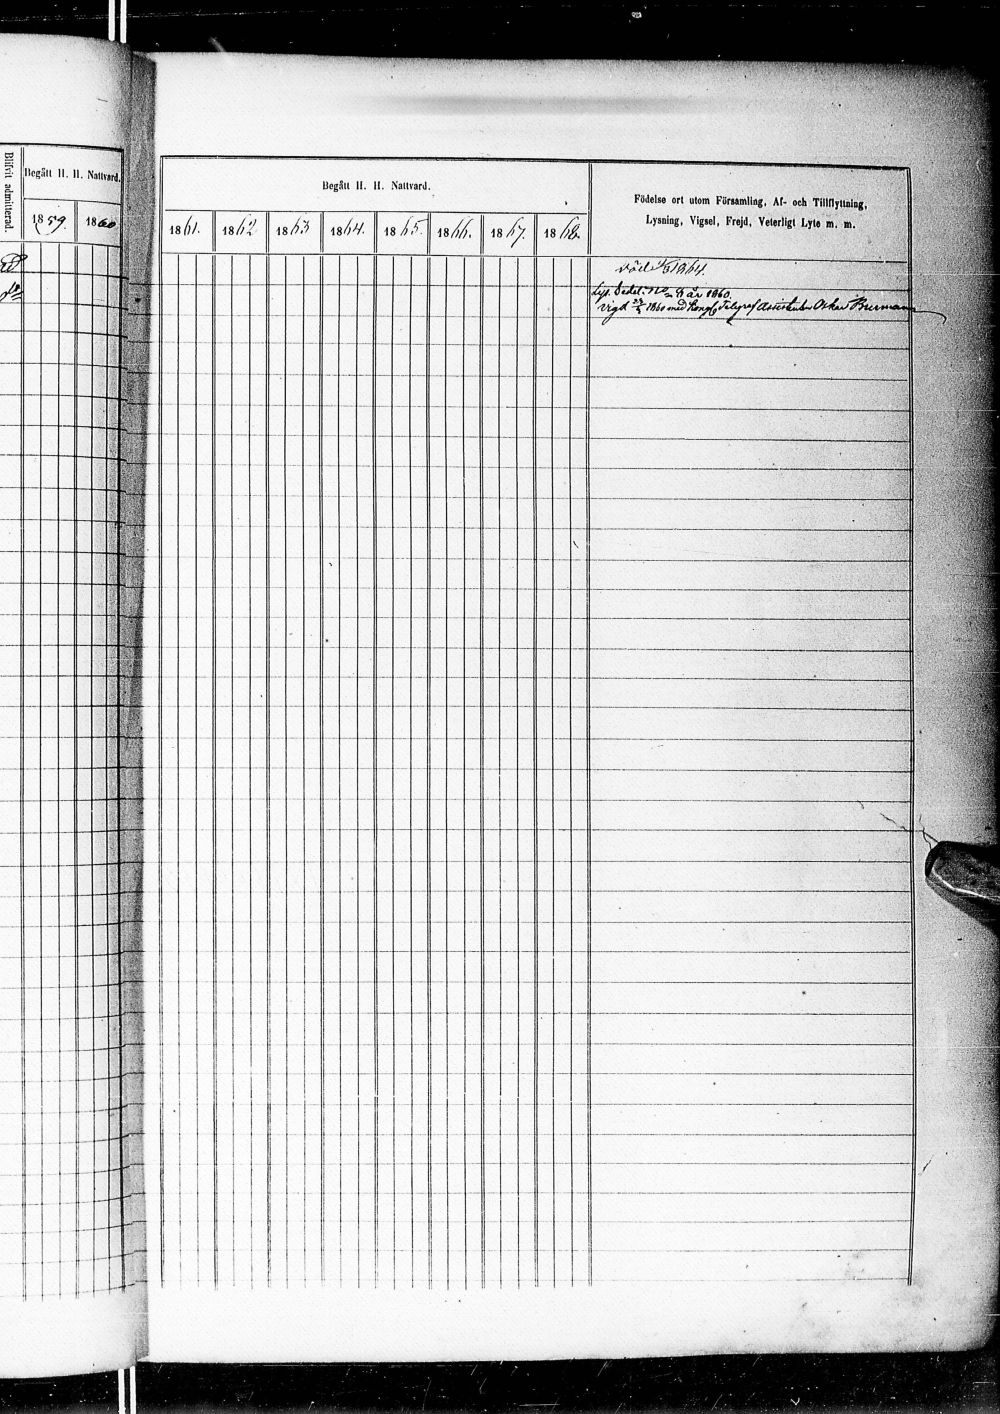 Blifvit admitterad.
Begått H. H. Nattvard.
1859. 1860
Begått H. H. Nattvard.
1861. 1862 1863 1864. 1865. 1866. 1867. 1868.
Födelse ort utom Församling, Af- och Tillflyttning,
Lysning, Vigsel, Frejd, Veterligt Lyte m. m.
död 1864.
år 1860.
Vigd 1860 med Kongl. Telegraf Assistenten Oskar Burman